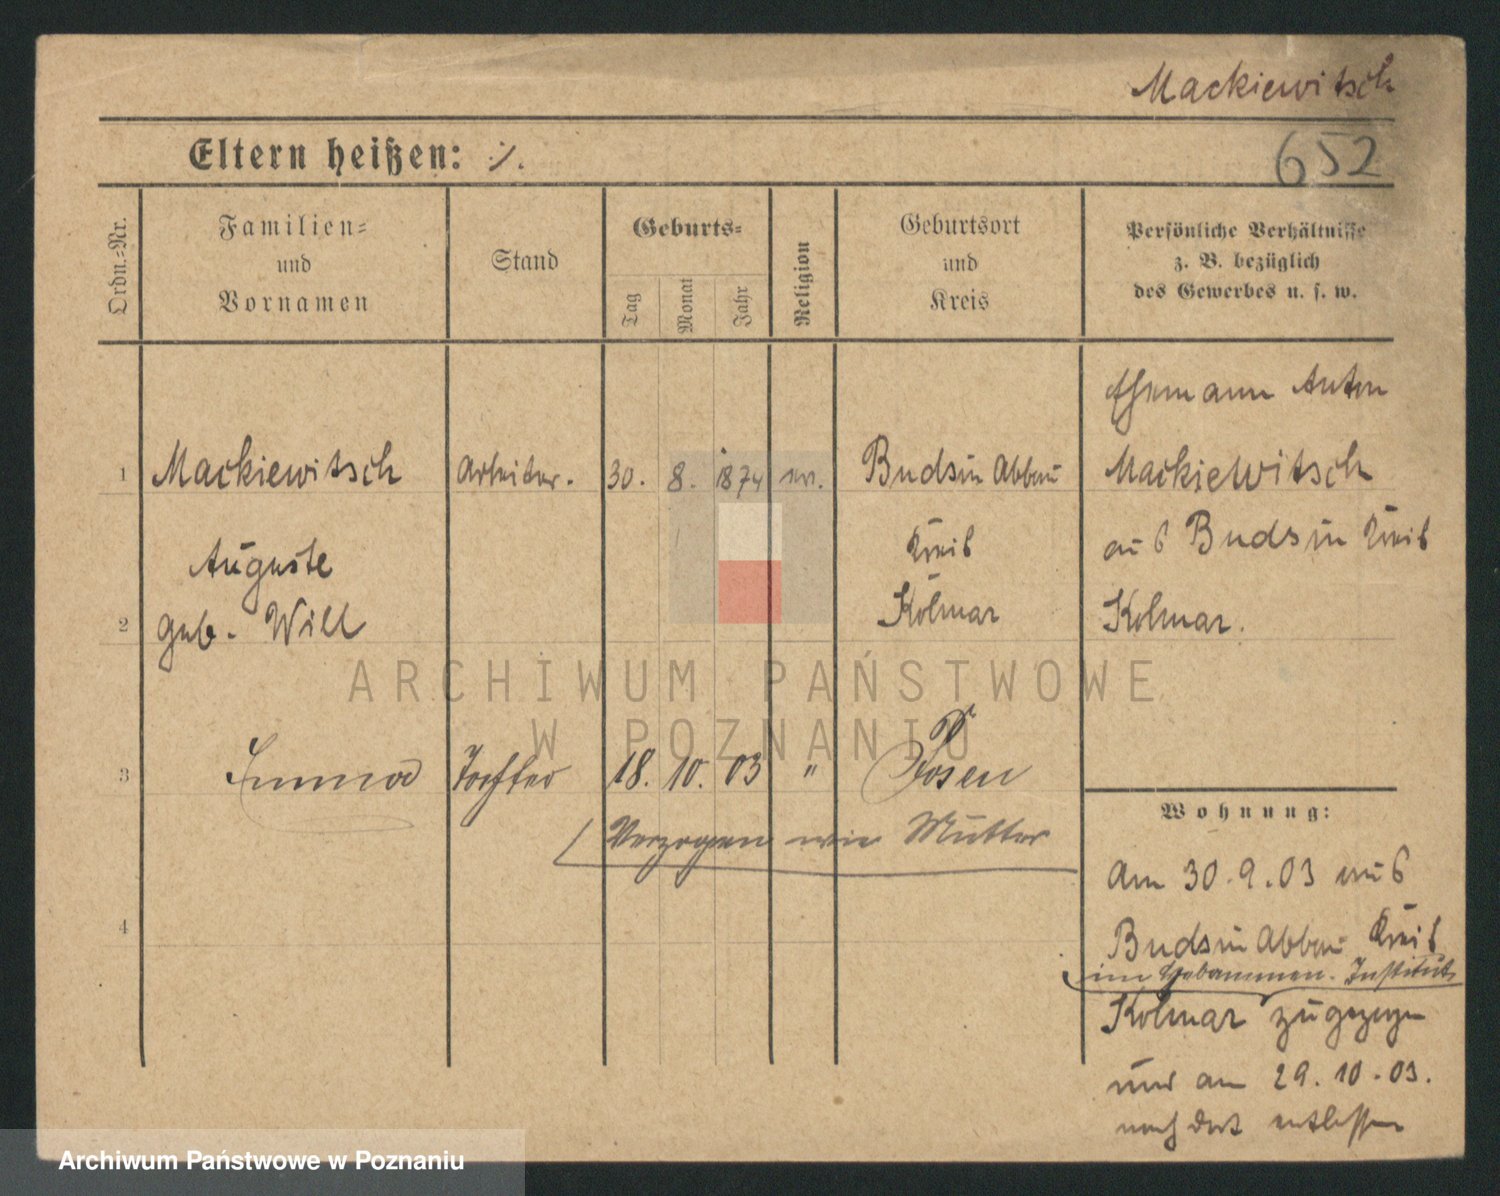 Mackiewitsch
Eltern heißen: ·/.
652
Ordn.=Nr.
Familien=
und
Vornamen
Stand
Geburts=
Tag
Monat
Jahr
Religion
Geburtsort
und
Kreis
Persönliche Verhältnisse
z. B. bezüglich
des Gewerbes u. s. w.
Ehemann Anton
1 Mackiewitsch Arbeiter. 30. 8. 1874 ev. Budsin Abbau Mackiewitsch
Kreis aus Budsin Kreis
Auguste
2 geb. Will Kolmar Kolmar.
ARCHIWUM PAŃSTWOWE
W POZNANIU
3 Emma Tochter 18. 10. 03 " Posen
Wohnung:
Verzogen wie Mutter
Am 30.9.03 aus
4 Budsin Abbau Kreis
im Hebammen-Institut
Kolmar zugezogen
und am 29.10.03.
nach dort entlassen
Archiwum Państwowe w Poznaniu